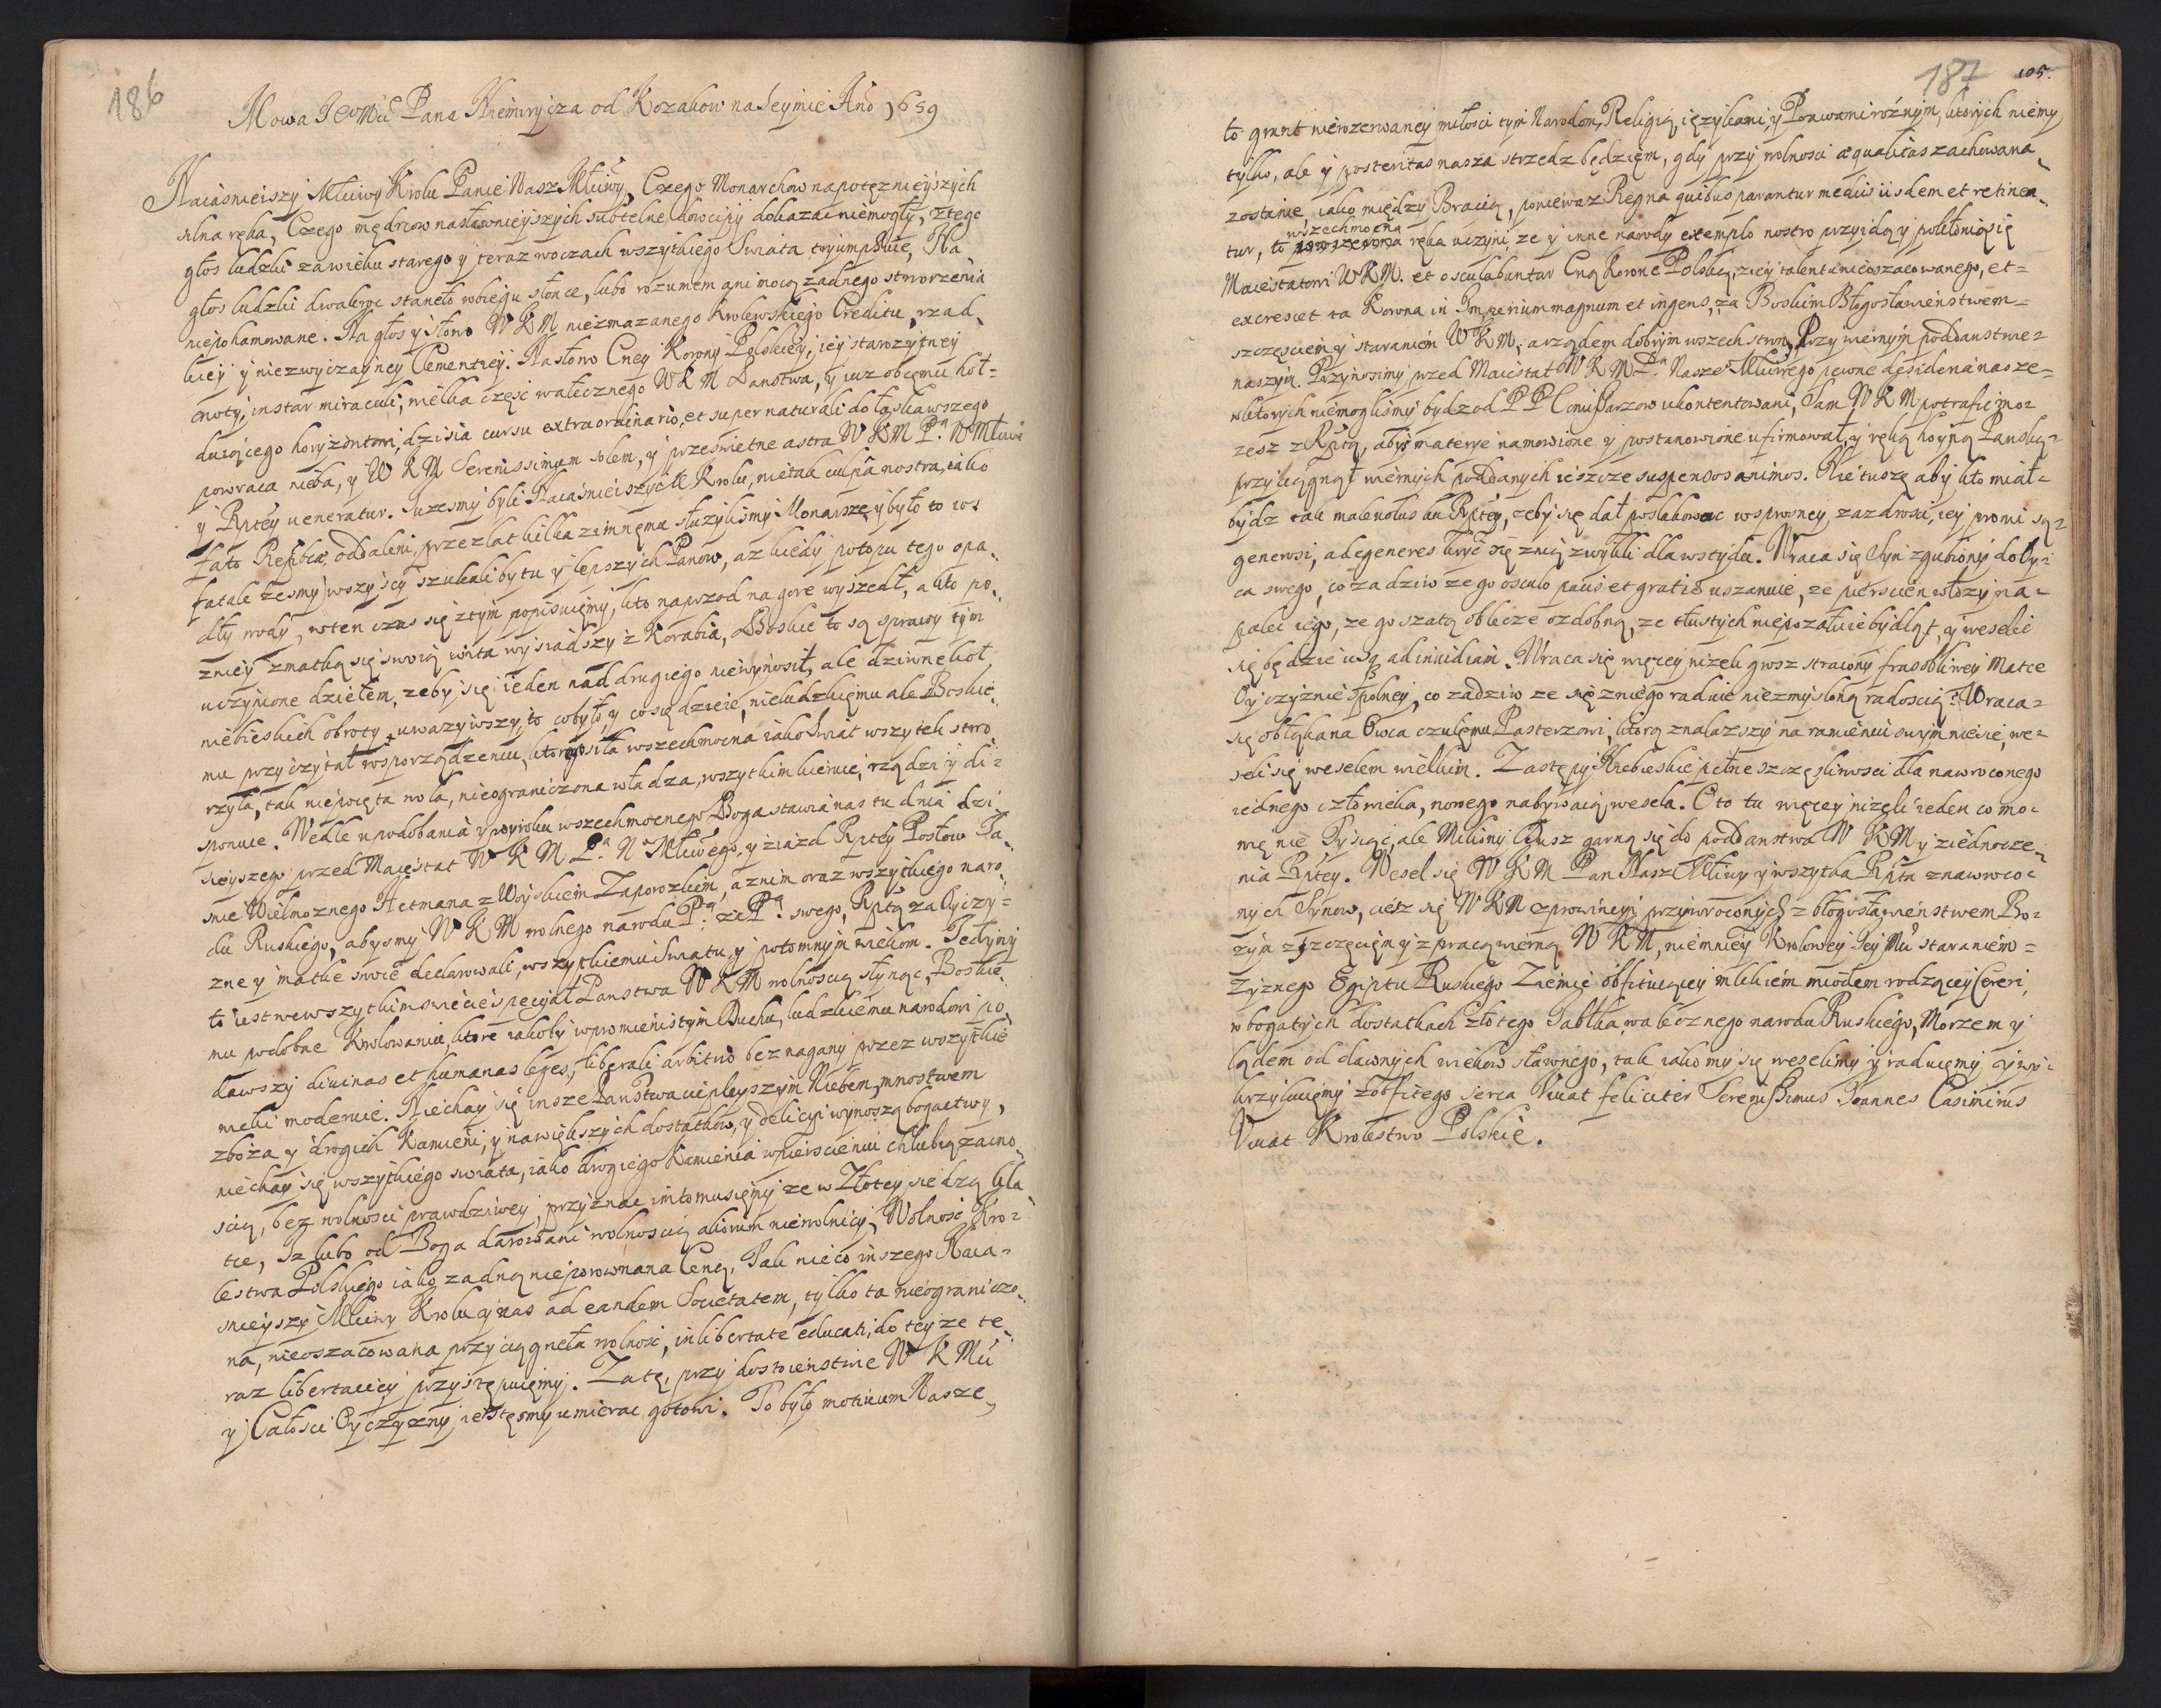 186
Mowa Jeo Mci Pana Niemirycza od Kozakow na Seymie Ano 1659
Naiasnieiszy Mciwy Krolu Panie Nasz Mciwy, Czego Monarchow napotęznieyszych
silna ręka, Czego mędrcow nasławnieyszych subtelne dowcipy dokazac niemogły, z tego
głos ludzki za wieku starego y teraz woczach wszytkiego Swiata tryumphuie, Na
głos ludzki dwakroc staneło wbiegu słonce, lubo rozumem ani mocą zadnego stworzenia
niepohamowane. Na głos y słowo W K M niezmazanego Krolewskiego Creditu, rzad-
kiey y niezwyczayney Clementiey. Na słowo Cney Korony Polskiey, iey starozytney
cnoty, instar miraculi, wielka częsc walecznego W K M Panstwa, y iuz obcemu hoł-
duiącego horyzontowi, dzisia cursu extraordinario, et supernaturali do łaskawszego
powraca nieba, y W K M Serenissimum solem, y przeswietne astra W K M P. N Mciwe
y Rptey veneratur. Iuzesmy byli Naiasnieiszy M Krolu, nie tak culpa nostra, iako
fato Reipbca oddaleni, przez lat kilka zimnęmu słuzylismy Monarsze y było to cos
fatale zesmy wszyscy szukali bytu y lepszych Panow, az kiedy potopu tego opa-
dły wody, w ten czas się z tym popisuięmy, kto naprzod na gore wyszedł, a kto po-
zniey z matką się swoią wita wysiadszy z Korabia, Boskie to są sprawy tym
uczynione dziełem, zeby się ieden nad drugiego niewynosił, ale dziwne koł
niebieskich obroty uwazywszy, to co było, y co się dzieie, nieludzkięmu ale Boskie-
mu przyczytał rosporządzeniu, ktorego siła wszechmocna iako Swiat wszytek stwo-
rzyła, tak niepoięta wola, nieograniczona władza, wszytkim kieruie, rządzi y di-
sponuie. Wedle upodobania y wyroku wszechmocnego Boga stawia nas tu dnia dzi-
sieyszego przed Maiestat W K M P. N Mciwego, y ziazd Rptey Posłow Ja-
snie Wielmoznego Hetmana z Woyskiem Zaporozkiem, a znim oraz wszytkiego naro-
du Ruskiego, abysmy W K M wolnego narodu P. za P. swego, Rptą za Oyczy-
znę y matkę swoię declarowali, wszytkiemu swiatu, y potomnym wiekom. Jedyny
to iest we wszytkim swiecie specyał Panstwa W K M wolnoscią słynąc, Boskie-
mu podobne Krolowanie, ktore iakoby w promienistym Duchu, ludzkiemu narodowi po-
dawszy divinas et humanas leges, liberali arbitrio bez nagany przez wszytkie
wieki moderuie. Niechay się insze Panstwa cieplejszym Niebem, mnostwem
zboza y drogich Kamieni, y nawiększych dostatkow, y delicyi wynoszą bogactwy,
niechay się wszytkiego swiata, iako drogiego Kamienia w piersceniu chlubią zacno-
scią, bez wolnosci prawdziwey, przyznac im to musięmy ze w Złotey siedzą kla-
tce, Iz lubo od Boga darowani wolnoscią a krom niewolnicy, Wolnosc Kro-
lestwa Polskiego iako zadną nieporownana Ceną, Tak nie co inszego Naia-
snieyszy Mciwy Krolu y nas ad eandem Societatem, tylko ta nieograniczo-
na, nieoszacowana przyciągneła wolnosc, in libertate educati, do teyze te-
raz libertaciey przystępuięmy. Za tę, przy dostoienstwie W K Mci
y Całosci Oyczyzny iestesmy umierac gotowi. To było motiuum Nasze,
187 105.
to grunt nierozerwaney miłosci tym Narodom, Religią, ięzykami, y Prawami roznym, ktorych niemy
tylko, ale y posteritas nasza strzedz będzięm, gdy przy wolnosci æqualitas zachowana
zostanie, iako między Bracią, poniewaz Regna quibus parantur mediis iisdem et retinen-
wszechmocna
tur, to ręka uczyni, ze y inne narody exemplo nostro przyidą y pokłonią się
Maiestatowi W K M. et osculabuntur Cną Koronę Polską, z iey talentu nieoszacowanego, et-
excrescet ta Korona in Imperium magnum et ingens, za Boskim Błogosławienstwem-
szczęsciem y staraniem W K M, a rządem dobrym wszech stron, Przy wiernym poddanstwie-
naszym. Przynosimy przed Maiestat W K M P. Nasze Mciwego pewne desideria nasze-
w ktorych niemoglismy bydz od P P Comissarzow ukontentowani, Sam W K M potrafic mo-
zesz z Rptą, abys materye namowione y postanowione ufirmował, y ręką hoyną Panską-
przyciągnął wiernych poddanych ieszcze suspensos animos. Nie tuszę aby kto miał-
bydz tak malevolus ku Rptey, zeby się dał poslakowac w sprosney zazdrosci, iey prowi są-
generosi, a degeneres kryc się z nią zwykli dla wstydu. Wraca się Syn zgubiony do Oy-
ca swego, co za dziw ze go osculo pacis et gratiæ uszanuie, ze piersciĕn włozy na-
palec iego, ze go szatą oblecze ozdobną, ze tłustych niepozałuie bydląt, y weselic
się będzie usq ad invidiam. Wraca się więcey nizeli grosz stracony frasobliwey Matce
Oyczyznie spolney, co za dziw ze się z niego raduie niezmysloną radoscią? Wraca-
się obłąkana Owca czułemu Pasterzowi, ktorą znalazszy na ramieniu swym niesie, we-
seli się weselem wielkim. Zastępy Niebieskie pełne szczęsliwosci dla nawroconego
iednego człowieka, nowego nabywaią wesela. Oto tu więcey nizeli ieden co mo-
wię nie Tysiąc, ale Miliony dusz garną się do poddanstwa W K M y ziednocze-
nia Rptey. Wesel się W K M Pan Nasz Mciwy y wszytka Rpta z nawroco-
nych Synow, ciesz się W K M z prowincyi przywroconych z błogosławienstwem Bo-
zym z szczęscięm y z pracą wierną W K M, niemniey Krolowey Jey Mci staraniem-
Zyznego Egiptu Ruskiego Ziemie obfituiącey mlekiem miodem rodzącey Cereri,
w bogatych dostatkach złotego Jabłka, walecznego narodu Ruskiego, Morzem y
lądem od dawnych wiekow sławnego, tak iako my się weselimy y raduięmy, y wy-
krzykuięmy z obfitego serca Vivat feliciter Serenissimus Joannes Casimirus
Vivat Krolestwo Polskie.